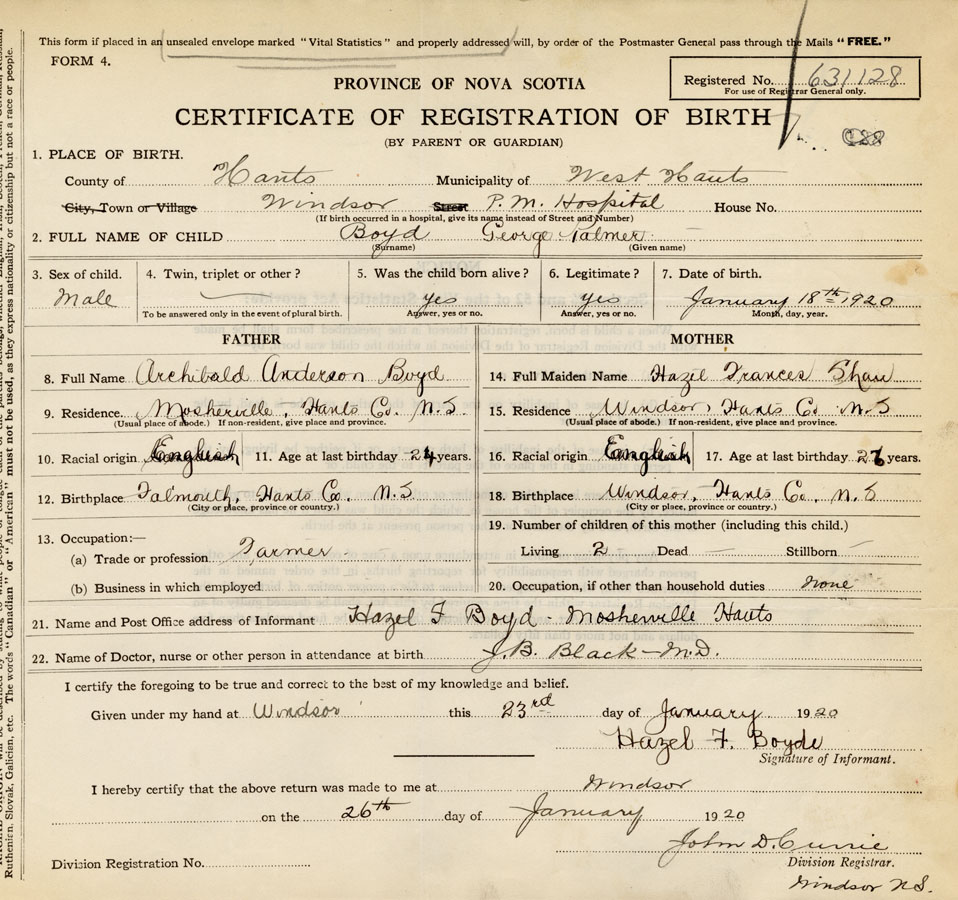 This form if placed in an unsealed envelope marked "Vital Statistics" and properly addressed will, by order of the Postmaster General pass through the Mails "FREE."
FORM 4.
Registered No. 631128
For use of Registrar General only.
PROVINCE OF NOVA SCOTIA
CERTIFICATE OF REGISTRATION OF BIRTH
(BY PARENT OR GUARDIAN)
1. PLACE OF BIRTH.
County of Hants Municipality of West Hants
City, Town or Village Windsor Street P.M. Hospital House No.
(If birth occurred in a hospital, give its name instead of Street and Number)
2. FULL NAME OF CHILD Boyd George Palmer
(Surname) (Given name)
3. Sex of child. 4. Twin, triplet or other? 5. Was the child born alive? 6. Legitimate? 7. Date of birth.
Male yes yes January 18th 1920
To be answered only in the event of plural birth. Answer, yes or no. Answer, yes or no. Month, day, year.
FATHER MOTHER
8. Full Name Archibald Anderson Boyd 14. Full Maiden Name Hazel Frances Shaw
9. Residence. Mosherville, Hants Co. N.S 15. Residence Windsor, Hants Co. N.S
(Usual place of abode.) If non-resident, give place and province. (Usual place of abode.) If non-resident, give place and province.
10. Racial origin English 11. Age at last birthday 24 years. 16. Racial origin English 17. Age at last birthday years.
12. Birthplace Falmouth, Hants Co., N.S 18. Birthplace Windsor, Hants Co., N.S
(City or place, province or country.) (City or place, province or country.)
13. Occupation:— 19. Number of children of this mother (including this child.)
(a) Trade or profession Farmer Living 2 Dead — Stillborn —
(b) Business in which employed 20. Occupation, if other than household duties none
21. Name and Post Office address of Informant Hazel F Boyd - Mosherville Hants
22. Name of Doctor, nurse or other person in attendance at birth J.B. Black—M.D.
I certify the foregoing to be true and correct to the best of my knowledge and belief.
Given under my hand at Windsor this 23rd day of January 1920
Hazel F. Boyde
Signature of Informant.
I hereby certify that the above return was made to me at Windsor
on the 26th day of January 1920
John D. Currie
Division Registration No. Division Registrar.
Windsor N.S.
Ruthenian, Slovak, Galician, etc. The words "Canadian" or "American" must not be used, as they express nationality or citizenship but not a race or people.